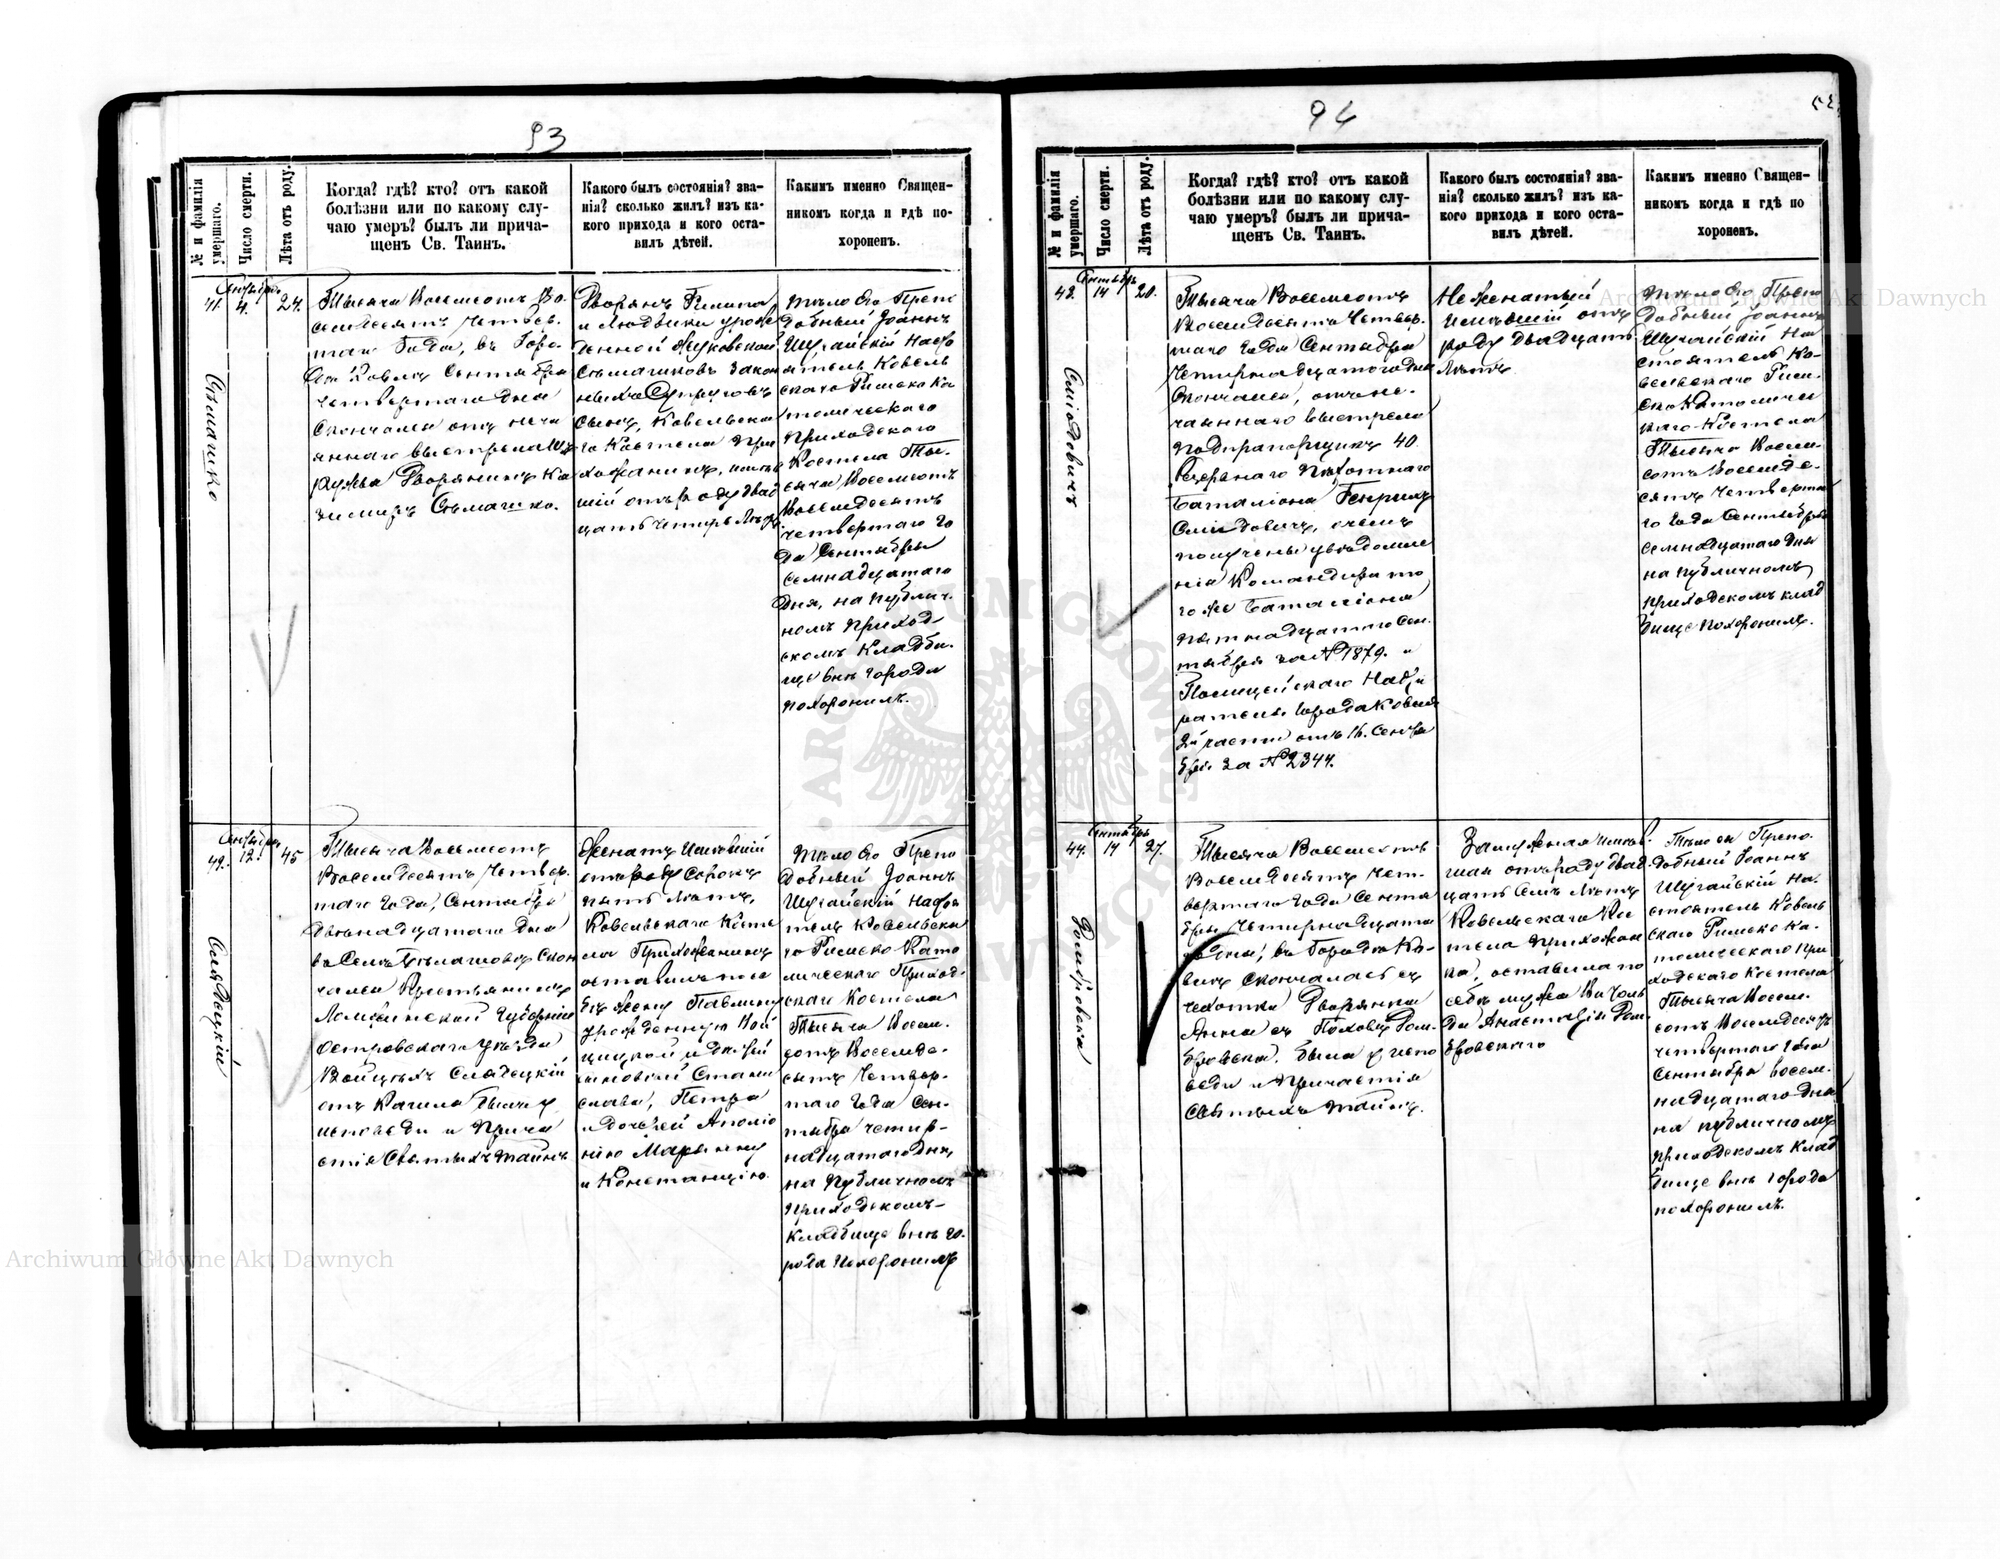 93
№ и фамилія умершаго.
Число смерти.
Лѣта отъ роду.
Когда? гдѣ? кто? отъ какой
болѣзни или по какому слу-
чаю умеръ? былъ ли прича-
щенъ Св. Таинъ.
Какого былъ состоянія? зва-
нія? сколько жилъ? изъ ка-
кого прихода и кого оста-
вилъ дѣтей.
Какимъ именно Священ-
никомъ когда и гдѣ по-
хороненъ.
41.
Сентября
4.
24.
Тысяча Восемсотъ Во-
семдесятъ Четвер-
таго Года, въ Горо-
дѣ Ковлѣ Сентября
четвертаго дня
Скончался отъ неча
яннаго выстрела изъ
ружья Дворянинъ Ка
зимиръ Сѣмашко.
Дворянъ
и Людвики урож
денной Жуковской
Сѣмашковъ Закон
ныхъ Супруговъ
Сынъ, Ковельска
го Костела При
хожанинъ, имѣв
шій отъ роду двад
цать четыре лѣтъ.
тѣло Его Препо
добный Іоаннъ
Шугайскій Насто
ятель Ковель
скаго Римско Ка
толическаго
Приходскаго
Костела Ты-
сяча Восемсотъ
Восемдесятъ
четвертаго Го
да Сентября
семнадцатаго
дня, на публич-
номъ приход-
скомъ Кладби-
ще внѣ города
похоронилъ.
Сѣмашко
42.
Сентября
12.
45
Тысяча Восемсотъ
Восемдесятъ Четвер-
таго Года, Сентября
Двѣнадцатаго Дня
въ Селѣ скон
чался Крестьянинъ
Ломжинской Губерніи
Островскаго Уѣзда
Войцѣхъ
отъ Кашля
исповѣди и Прича
стія Святыхъ тайнъ
Женатъ Имѣвшій
отъ роду сорокъ
пять лѣтъ,
Ковельскаго Косте
ла Прихожанинъ
оставилъ по се
бѣ жену Павлину
урожденную Вой
цицкой и дѣтей
сыновей Стани
слава, Петра
и дочерей Аполо
нію Маріянну
и Констанцію
тѣло Его Препо
добный Іоаннъ
Шугайскій Насто
ятель Ковельска
го Римско Като
лическаго Приход-
скаго Костела
Тысяча Восем-
сотъ Восемде-
сятъ Четвер-
таго Года Сен-
тября четыр-
надцатаго дня,
на публичномъ
приходскомъ
кладбище внѣ го-
рода похоронилъ
94
№ и фамилія умершаго.
Число смерти.
Лѣта отъ роду.
Когда? гдѣ? кто? отъ какой
болѣзни или по какому слу-
чаю умеръ? былъ ли прича-
щенъ Св. Таинъ.
Какого былъ состоянія? зва-
нія? сколько жилъ? изъ ка-
кого прихода и кого оста-
вилъ дѣтей.
Какимъ именно Священ-
никомъ когда и гдѣ по
хороненъ.
43.
Сентябрь
14
20.
Тысяча Восемсотъ
Восемдесятъ Четвер-
таго Года Сентября
Четырнадцатаго дня
Скончался, отъ не-
чаяннаго выстрела
подпрапорщикъ 40.
Резервнаго Пѣхотнаго
Баталіона Генрихъ
о чемъ
получены увѣдомле
нія Командира то
го же Баталіона
пятнадцатаго Сен-
тября за № 1879. и
Полицейскаго Надзи
рателя города Ковля
2й части отъ 16. Сентя
бря за № 2344.
Не женатый
имѣвшій отъ
роду двадцать
лѣтъ
тѣло Его Препо
добный Іоаннъ
Шугайскій На
стоятель Ко-
вельскаго Рим-
ско Католиче
скаго Костела
Тысяча Восем-
сотъ Восемде-
сятъ Четверта
го Года Сентября
семнадцатаго дня
на публичномъ
приходскомъ клад
бище похоронилъ.
44.
Сентябрь
14
27.
Тысяча Восемсотъ
Восемдесятъ Чет-
вертаго Года Сентя
бря Четырнадцата
го дня, въ Городѣ Ко-
влѣ Скончалась съ
чахотки Дворянка
Анна съ
была у испо
вѣди и Причастія
Святыхъ тайнъ.
Замужняя имѣв-
шая отъ роду двад
цать семь лѣтъ
Ковельскаго Кос
тела прихожан
ка, оставила по
себѣ мужа
тѣло ея Препо-
добный Іоаннъ
Шугайскій На-
стоятель Ковель
скаго Римско Ка-
толическаго При
ходскаго Костела
Тысяча Восем-
сотъ Восемдесятъ
четвертаго Года
Сентября восем-
надцатаго дня
на публичномъ
приходскомъ клад
бище внѣ города
похоронилъ.
Archiwum Główne Akt Dawnych
Archiwum Główne Akt Dawnych
ARCHIWUM GŁÓWNE AKT DAWNYCH